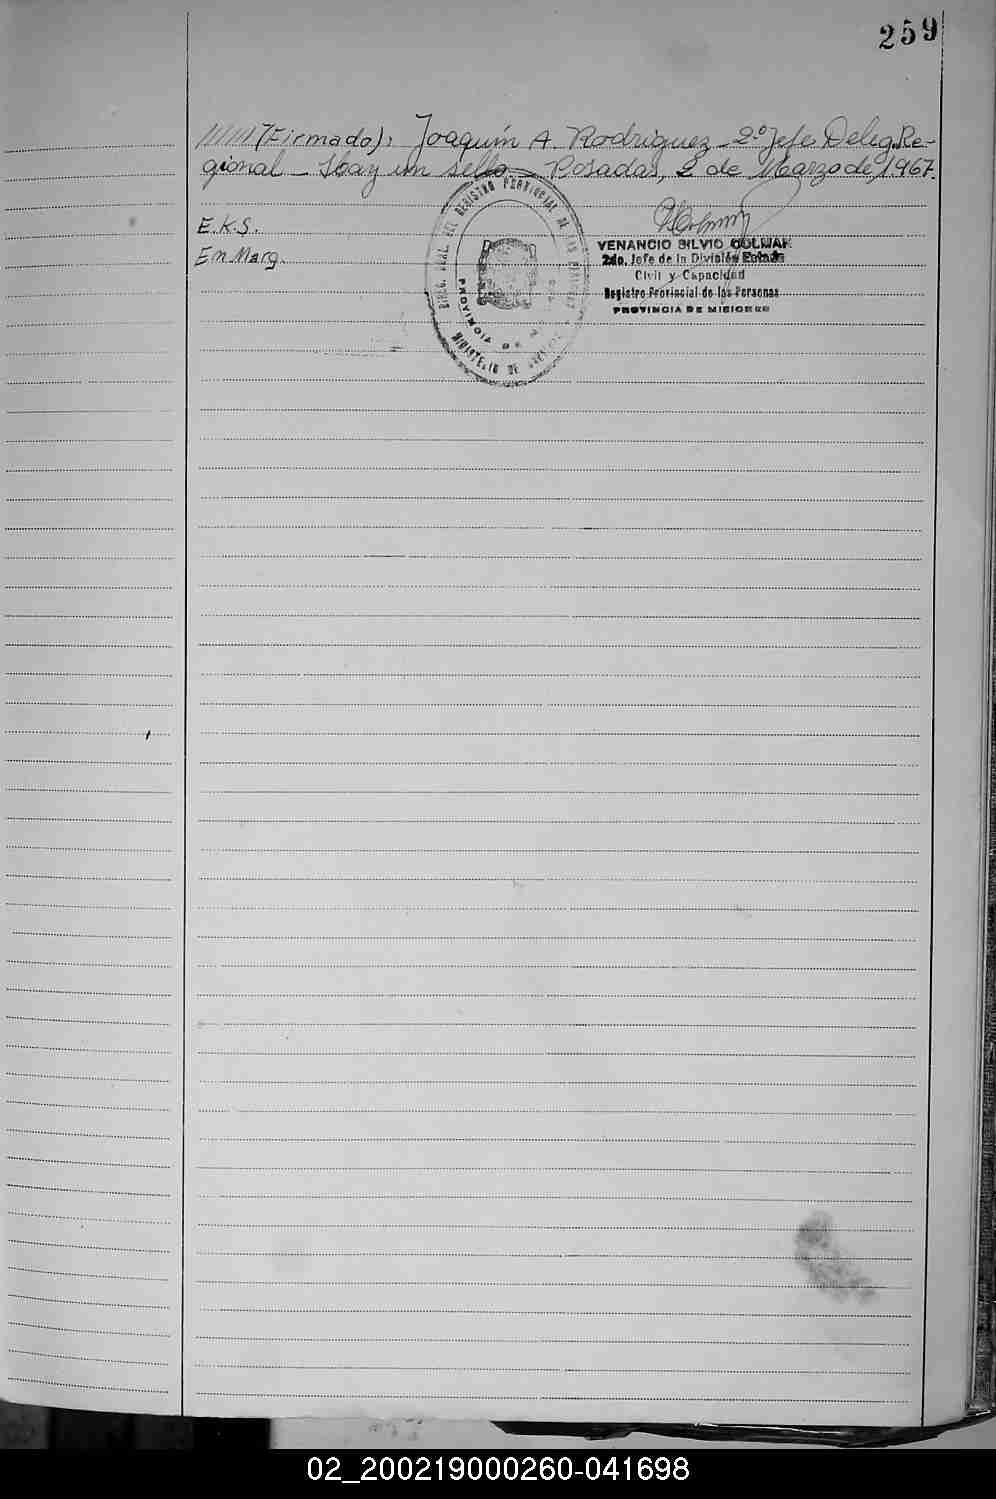 259
////// (Firmado): Joaquín A. Rodriguez - 2º Jefe Deleg. Re-
gional - Hay un sello - Posadas, 2 de Marzo de 1.967.
E.K.S.
Em Marg.
DIREC. GRAL. DEL REGISTRO PROVINCIAL DE LAS PERSONAS
PROVINCIA DE
MINISTERIO DE
VENANCIO SILVIO COLMAN
2do. Jefe de la División Estado
Civil y Capacidad
Registro Provincial de las Personas
PROVINCIA DE MISIONES
02_200219000260-041698